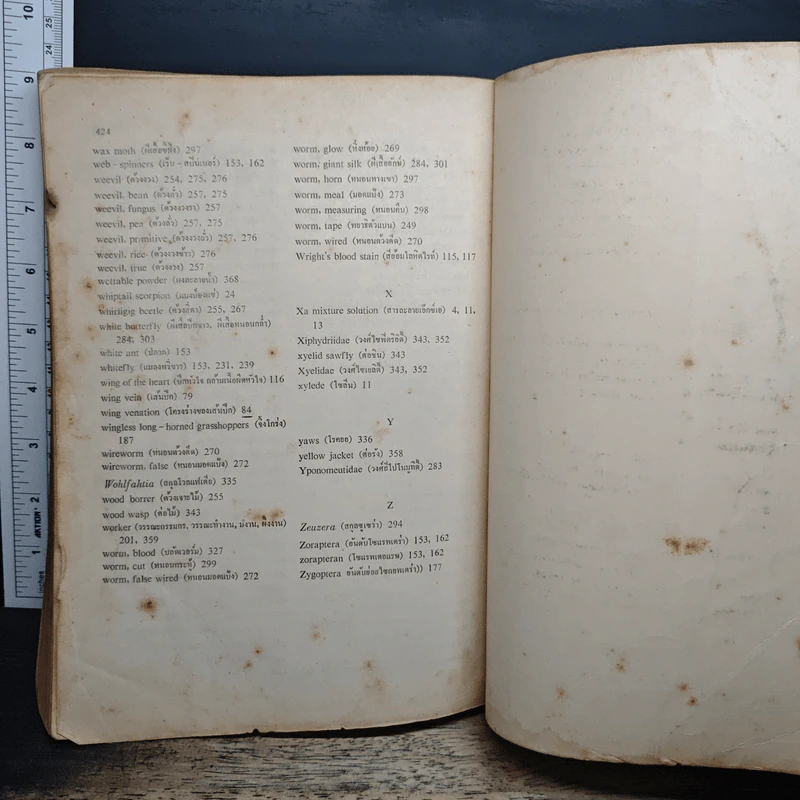 424
wax moth (ผีเสื้อขี้ผึ้ง) 297
web-spinners (เว็บ-สปินเนอร์) 153, 162
weevil (ด้วงงวง) 254, 275, 276
weevil, bean (ด้วงถั่ว) 257, 275
weevil, fungus (ด้วงงวงรา) 257
weevil, pea (ด้วงถั่ว) 257, 275
weevil, primitive (ด้วงงวงถั่ว) 257, 276
weevil, rice (ด้วงงวงข้าว) 276
weevil, true (ด้วงงวง) 257
wettable powder (ผงละลายน้ำ) 368
whiptail scorpion (แมงป่องแซ่) 24
whirligig beetle (ด้วงสี่ตา) 255, 267
white butterfly (ผีเสื้อปีกขาว, ผีเสื้อหนอนกล่ำ)
284, 303
white ant (ปลวก) 153
whitefly (แมลงหวี่ขาว) 153, 231, 239
wing of the heart (ปีกหัวใจ กล้ามเนื้อยึดหัวใจ) 116
wing vein (เส้นปีก) 79
wing venation (โครงร่างของเส้นปีก) 84
wingless long-horned grasshoppers (จิ้งโกร่ง)
187
wireworm (หนอนด้วงดีด) 270
wireworm, false (หนอนมอดแป้ง) 272
Wohlfahtia (สกุลโวลแฟเตีย) 335
wood borrer (ด้วงเจาะไม้) 255
wood wasp (ต่อไม้) 343
worker (วรรณะกรรมกร, วรรณะทำงาน, มดงาน, ผึ้งงาน)
201, 359
worm, blood (บลัดเวอร์ม) 327
worm, cut (หนอนกระทู้) 299
worm, false wired (หนอนมอดแป้ง) 272
worm, glow (หิ่งห้อย) 269
worm, giant silk (ผีเสื้อยักษ์) 284, 301
worm, horn (หนอนหางเขา) 297
worm, meal (มอดแป้ง) 273
worm, measuring (หนอนคืบ) 298
worm, tape (พยาธิตัวแบน) 249
worm, wired (หนอนด้วงดีด) 270
Wright's blood stain (สีย้อมโลหิตไรท์) 115, 117
X
Xa mixture solution (สารละลายเอ็กซ์เอ) 4, 11,
13
Xiphydriidae (วงศ์ไซฟิดริอิดี้) 343, 352
xyelid sawfly (ต่อซิน) 343
Xyelidae (วงศ์ไซเอลิดี้) 343, 352
xylede (ไซลีน) 11
Y
yaws (โรคยอ) 336
yellow jacket (ต่อรัง) 358
Yponomeutidae (วงศ์อีโปโนมูทิดี้) 283
Z
Zeuzera (สกุลซูเซร่า) 294
Zoraptera (อันดับโซแรพเตร่า) 153, 162
zorapteran (โซแรพเตอแรน) 153, 162
Zygoptera อันดับย่อยไซกอพเตร่า) 177